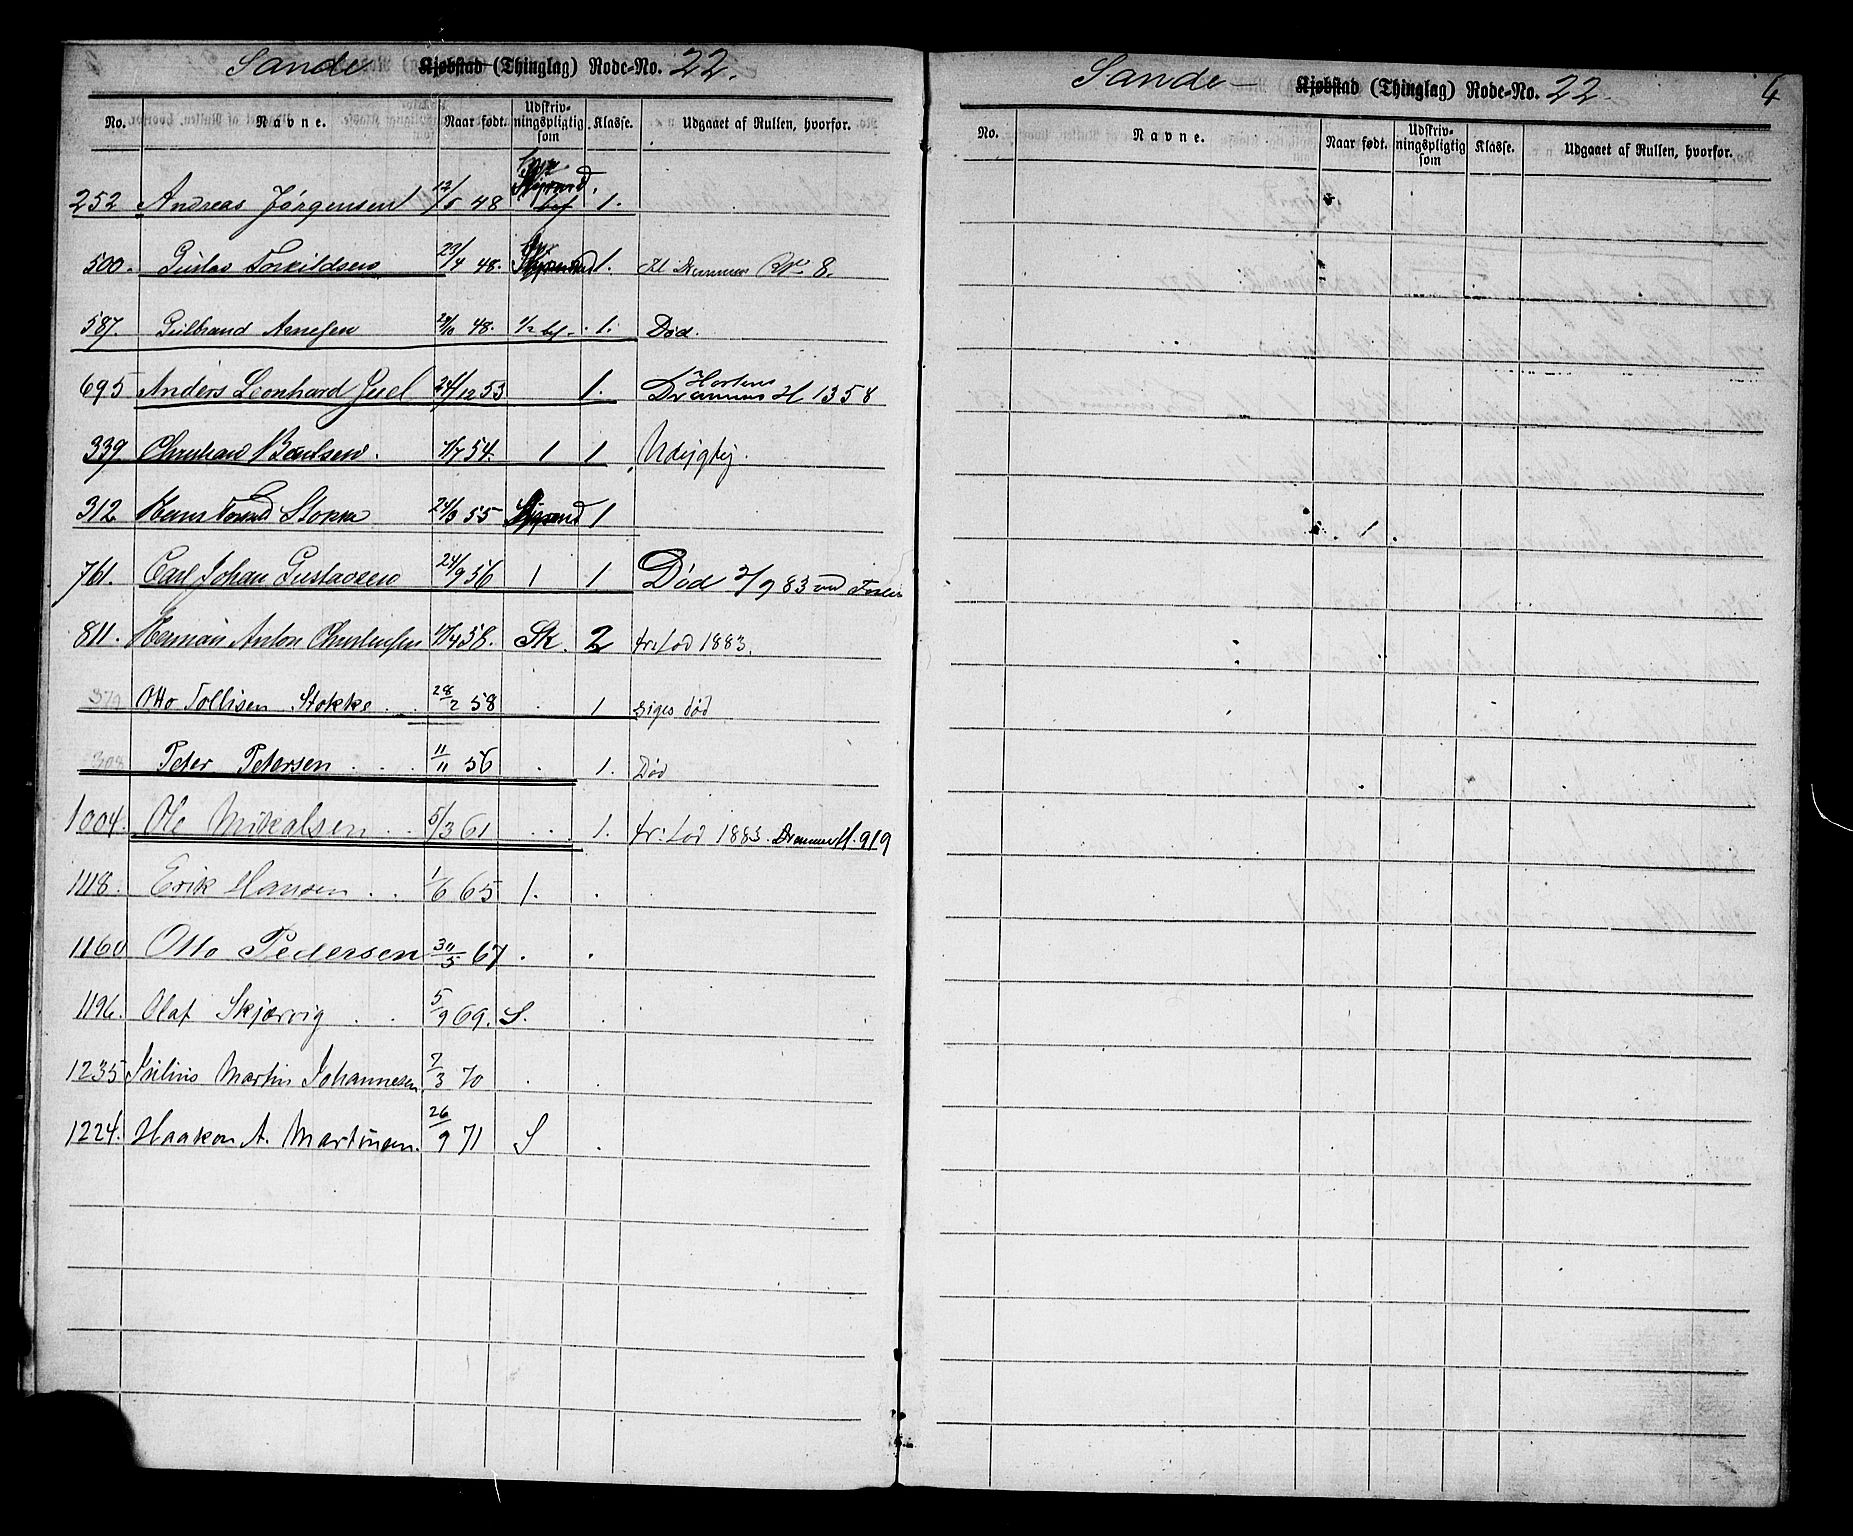 Sande Kjøbstad (Thinglag) Rode-No. 22.
No. Navne. Naar født. Udskriv-ningspligtig som Klasse. Udgaaet af Rullen, hvorfor.
252 Andreas Jørgensen 12/5 48 1.
500. Gustav Torkildsen 23/4 48. 1. til Drammen No 8.
587. Gulbrand Arnesen 48. 1/2 bef. 1. Død.
695 Anders Leonhard 24/12 53 1. Horten
Drammen H 1358
339. Christian Paulsen. 7/7 54. 1 1 Udygtig.
312 Hans Stokke 55 1
761. Carl Johan Gustavsen 24/9 56 1 1 Død 2/9 83
811. Herman Anton Christensen 17/4 58. Sk. 2 fr: Lod 1883.
379 Otto Tollisen Stokke 28/2 58 1 siges død
308 Peter Petersen 11/11 56 1. Død
1004. Ole Mikalsen 5/3 61 1. fr: Lod 1883. Drammen H. 919
1118. Erik Hansen 1/6 65 1.
1160 Otto Pedersen 67
1196. Olaf Skjærvig 5/9 69. S.
1235 Julius Martin Johannesen 7/3 70
1224. Haakon A. Martinsen. 26/9 71 S
Sande Kjøbstad (Thinglag) Rode-No. 22. 4
No. Navne. Naar født. Udskriv-ningspligtig som Klasse. Udgaaet af Rullen, hvorfor.